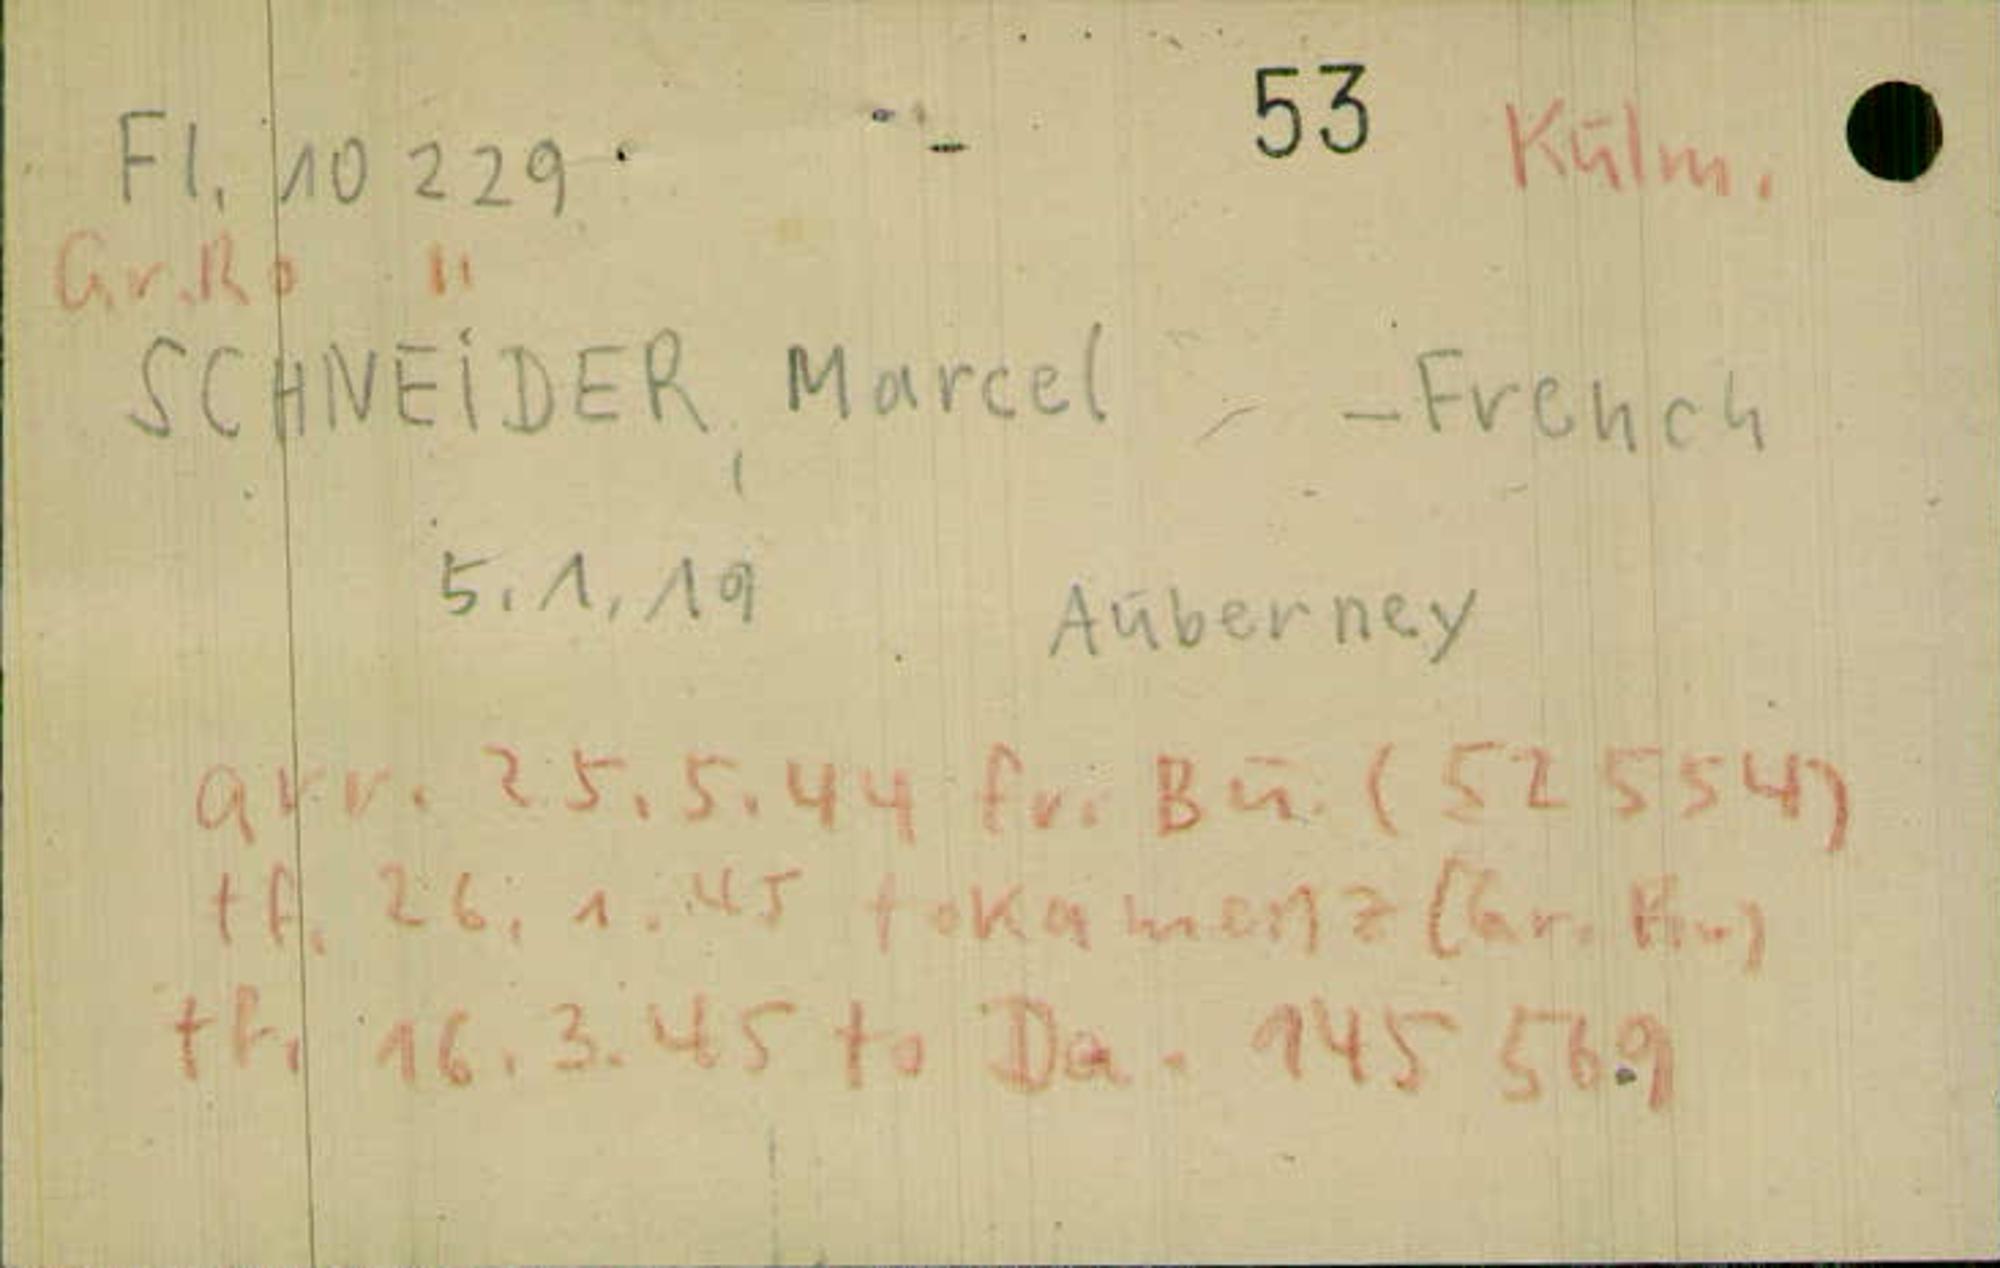 53 Kūlm.
Fl. 10 229
Gr.Ro "
SCHNEIDER, Marcel - French
5.1.19 Aūberney
arr. 25.5.44 fr. Bū. (52 554)
tf. 26.1.45 to Kamenz (Gr. Ro)
tf. 16.3.45 to Da. 145 569